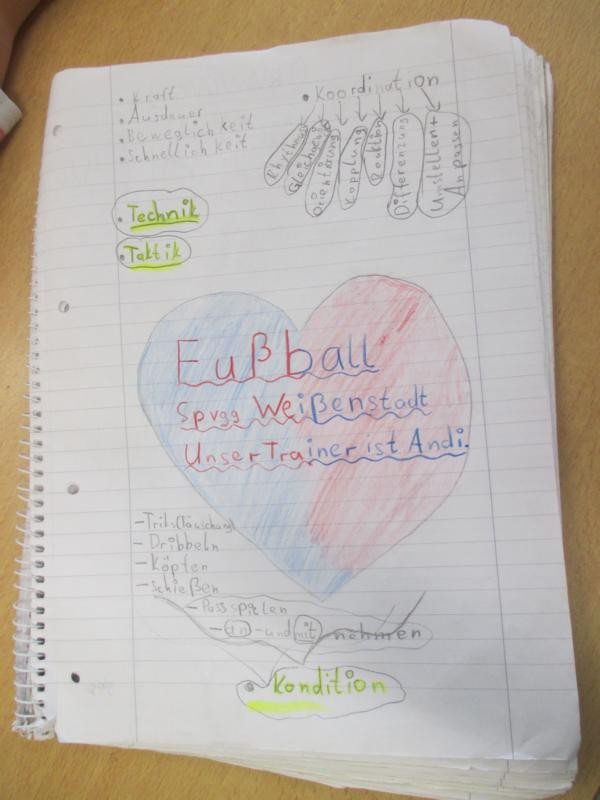 • Kraft
• Ausdauer
• Beweglichkeit
• Schnellichkeit
• Koordination
Rhythmus
Gleichgewicht
Orientirung
Kopplung
Reaktion
Differenzung
Umstellen +
Anpassen
• Technik
• Taktik
Fußball
Spvgg Weißenstadt
Unser Trainer ist Andi.
- Triks (Täuschung)
- Dribbeln
- Köpfen
- schießen
- Pass spielen
- an - und mit nehmen
• Kondition